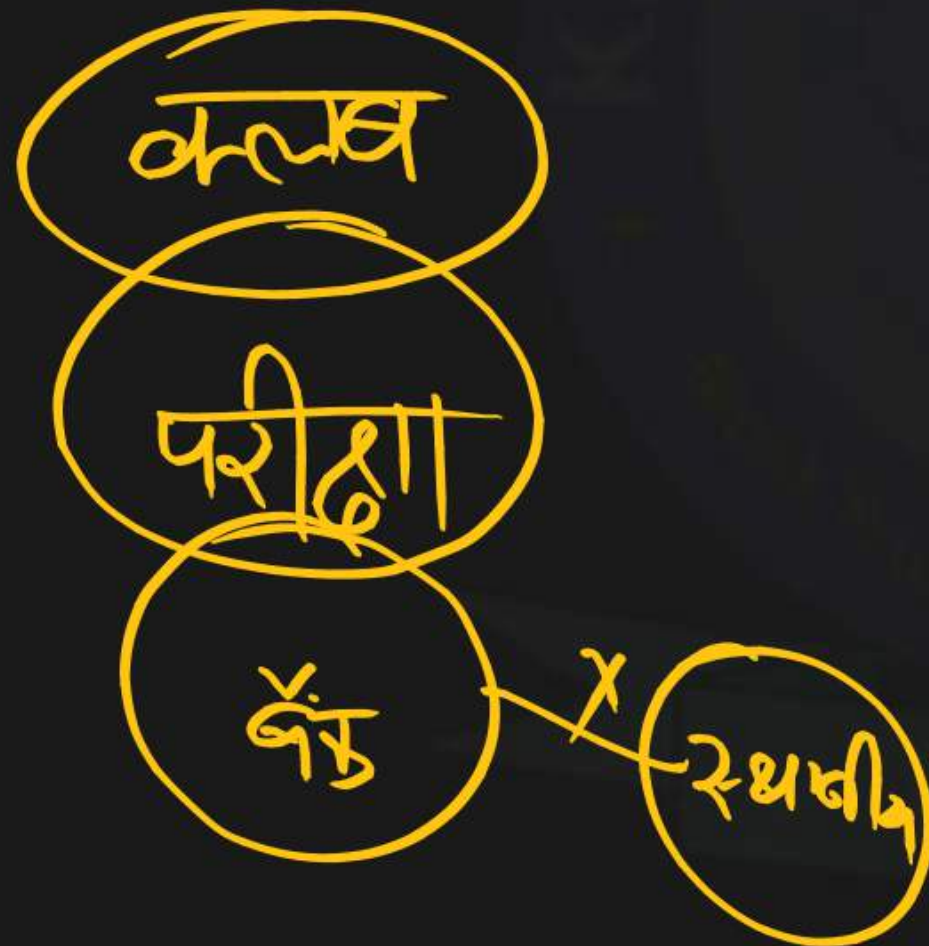 क्लब
परीक्षा
बैंड
X
स्थनीय